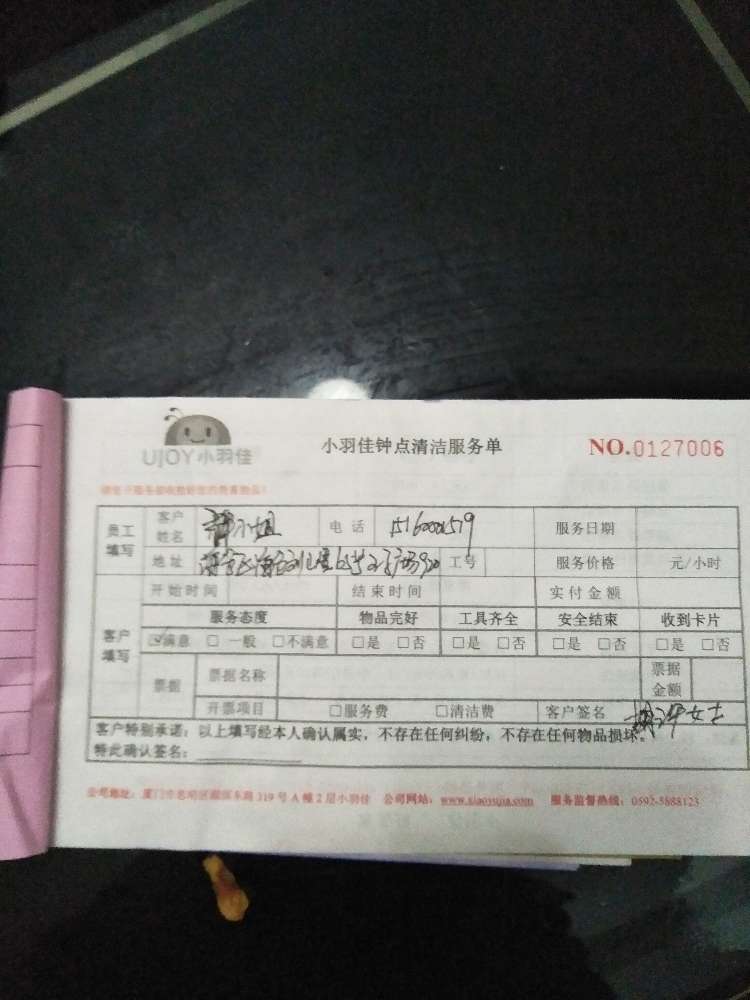 UJOY小羽佳
小羽佳钟点清洁服务单
NO.0127006
员工填写 客户姓名 小姐 电话 服务日期
地址 工号 服务价格 元/小时
开始时间 结束时间 实付金额
客户填写 服务态度 物品完好 工具齐全 安全结束 收到卡片
☑满意 □一般 □不满意 □是 □否 □是 □否 □是 □否 □是 □否
票据 票据名称 票据金额
开票项目 □服务费 □清洁费 客户签名 女士
客户特别承诺:以上填写经本人确认属实,不存在任何纠纷,不存在任何物品损坏。
特此确认签名:
公司地址:厦门市思明区 319号A幢2层小羽佳 公司网站:www.xiaoyujia.com 服务监督热线:0592-5888123